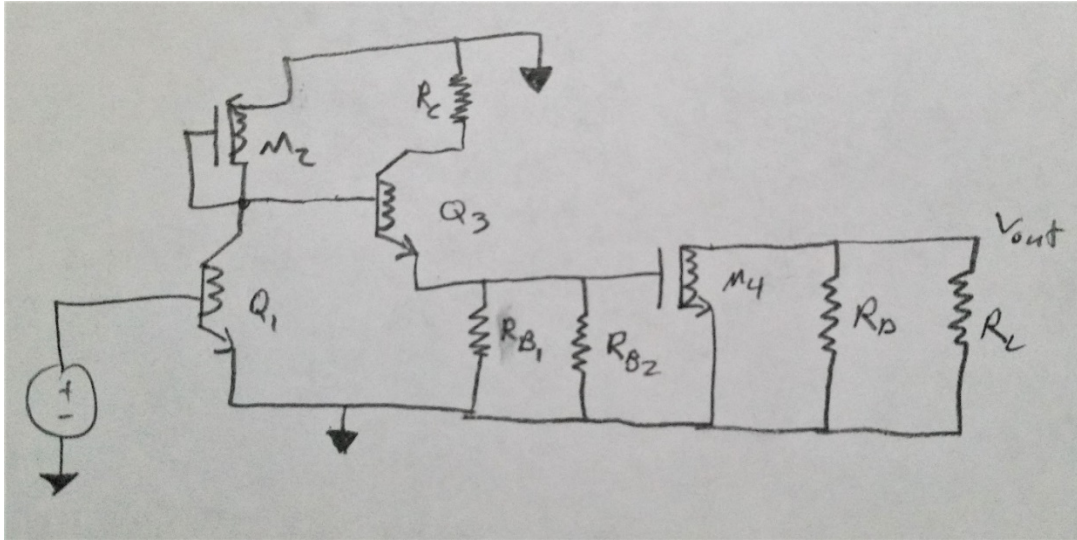 R_C
M_2
Q_3
V_out
M_4
Q_1
R_B1
R_B2
R_D
R_L
+
-